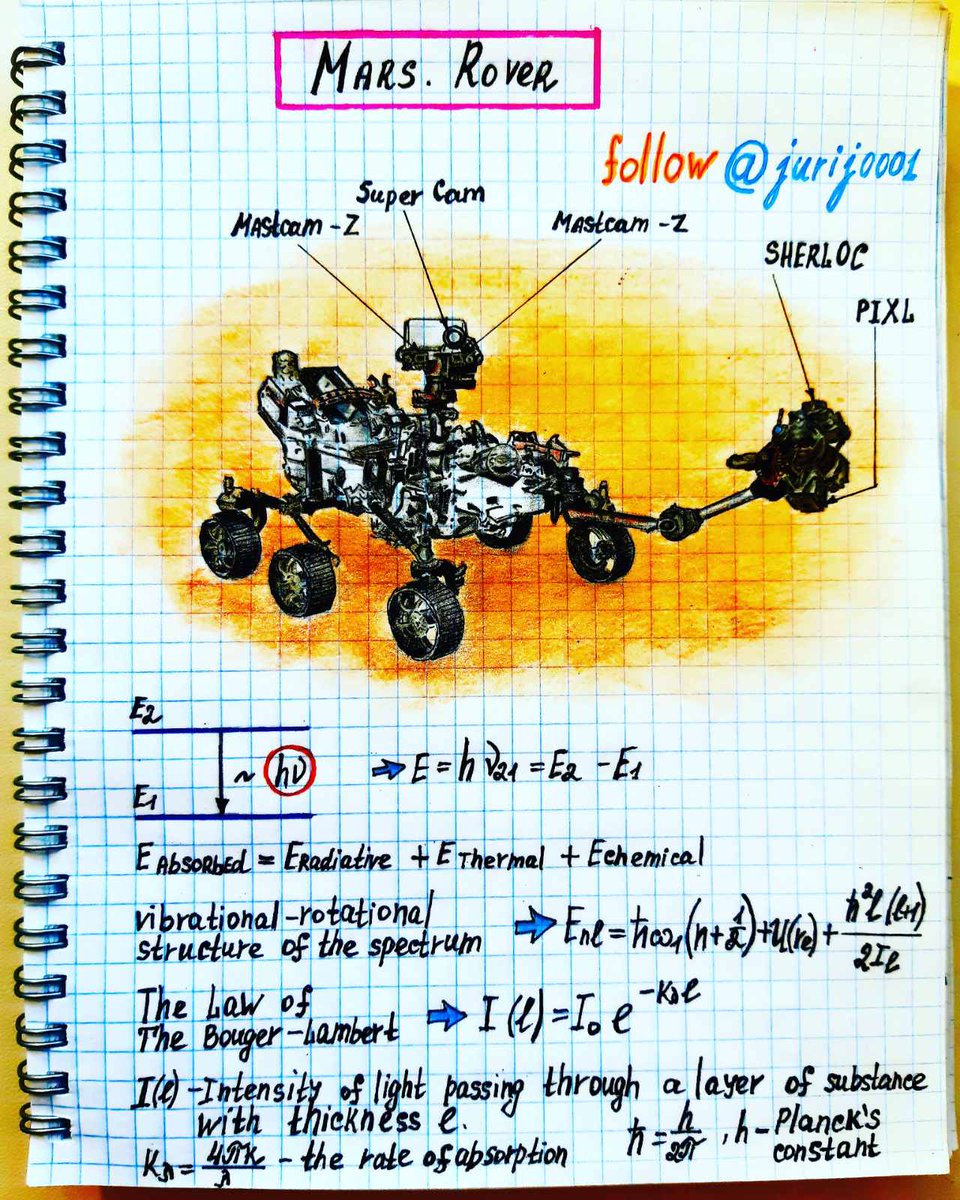 Mars. Rover
follow @jurij0001
Super Cam
Mastcam - Z
Mastcam - Z
SHERLOC
PIXL
E2
~ hν
E1
E = hν21 = E2 - E1
E Absorbed = E Radiative + E Thermal + E chemical
vibrational-rotational
structure of the spectrum
Enl = ħω1(n + 1/2) + U(re) + ħ²l(l+1)/2Il
The Law of
The Bouger-Lambert
I(l) = I0 e^-Kλl
I(l) - Intensity of light passing through a layer of substance
with thickness l.
ħ = h/2π, h - Planck's
constant
Kλ = 4πk/λ - the rate of absorption